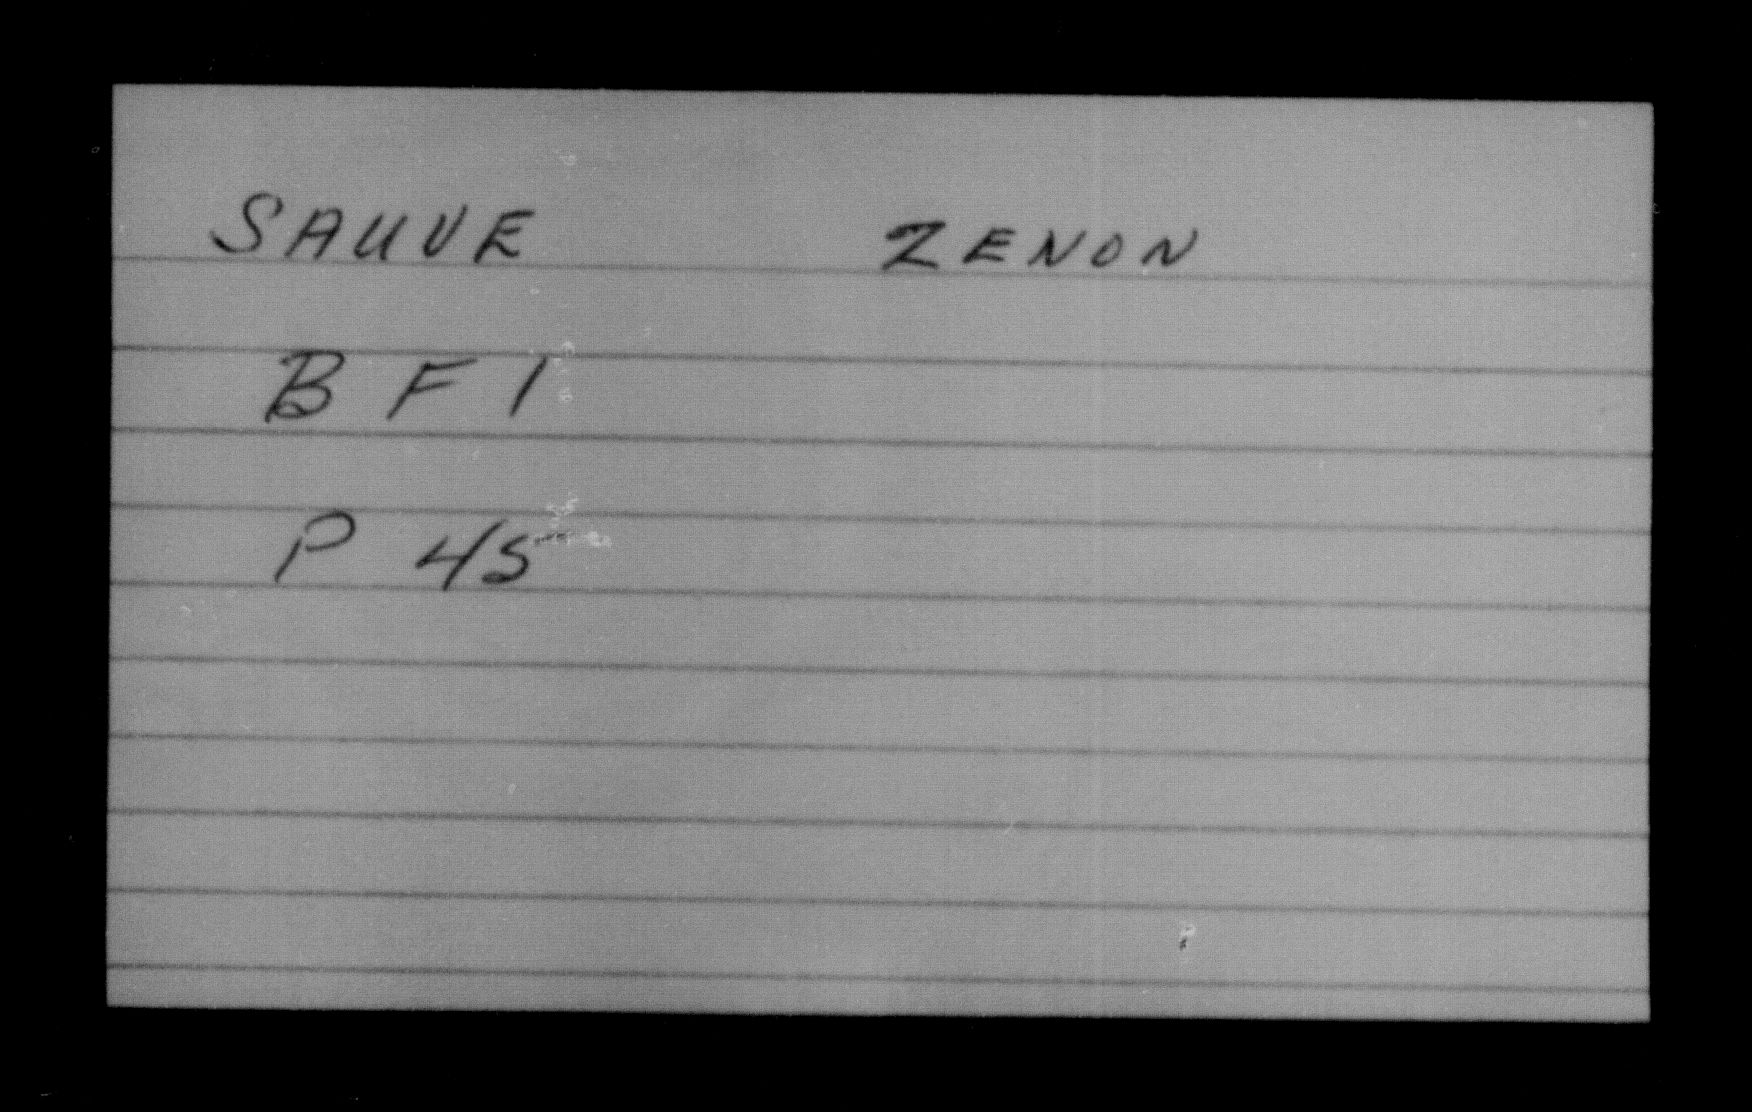 SAUVE ZENON
B F 1
P 45